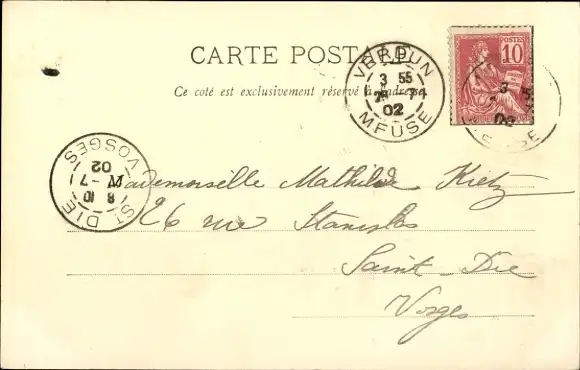 CARTE POSTALE
Ce coté est exclusivement réservé à l'adresse
POSTES
10
VERDUN
3 55
02
MEUSE
3
02
MEUSE
ST DIE
8 10
7
02
VOSGES
Mademoiselle Mathilde Kretz
26 rue Stanislas
Saint-Die
Vosges